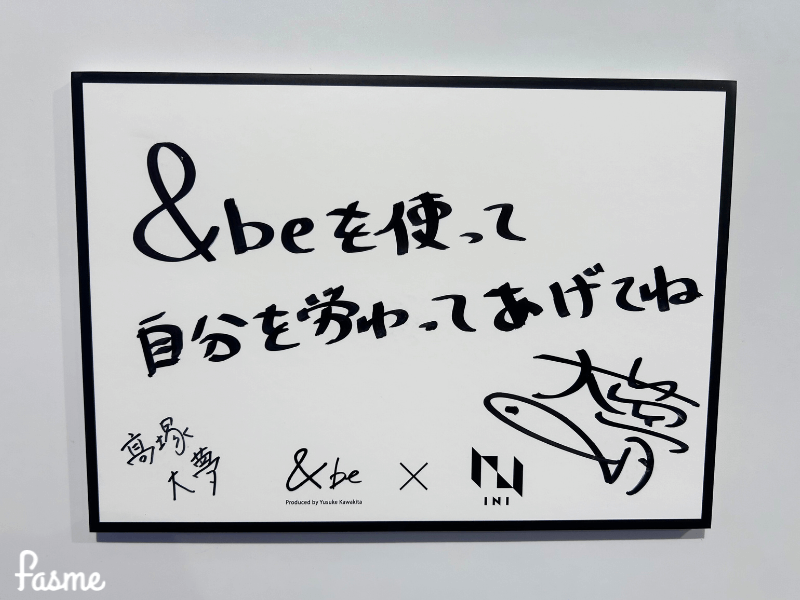 &beを使って
自分を労わってあげてね
大夢
高塚
大夢
&be
Produced by Yusuke Kawakita
×
INI
fasme